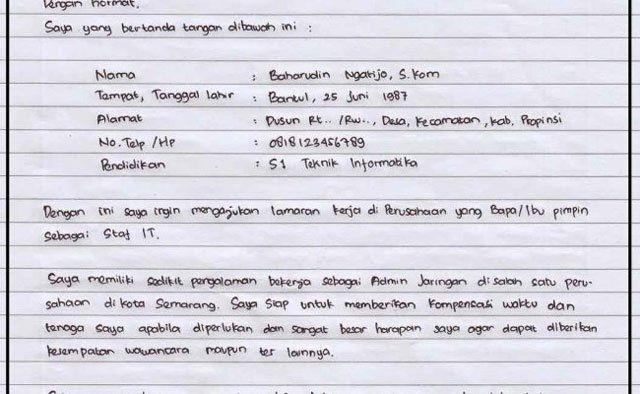 Dengan hormat,
Saya yang bertanda tangan dibawah ini :
Nama : Baharudin Ngatijo, S.Kom
Tempat, Tanggal lahir : Bantul, 25 Juni 1987
Alamat : Dusun Rt.. /Rw.., Desa, Kecamatan, Kab. Propinsi
No. Telp /Hp : 0818123456789
Pendidikan : S1 Teknik Informatika
Dengan ini saya ingin mengajukan lamaran kerja di Perusahaan yang Bapa/Ibu pimpin
sebagai Staf IT.
Saya memiliki sedikit pengalaman bekerja sebagai Admin Jaringan di salah satu peru-
sahaan di kota Semarang. Saya siap untuk memberikan kompensasi waktu dan
tenaga saya apabila diperlukan dan sangat besar harapan saya agar dapat diberikan
kesempatan wawancara maupun tes lainnya.